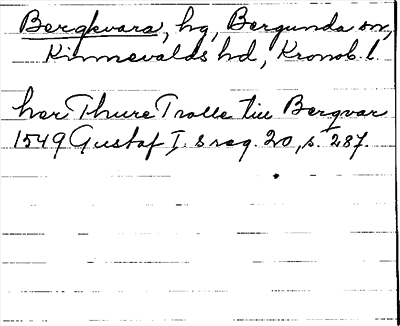 Bergkvara, hg, Bergunda sn,
Kinnevalds hd, Kronob. l.
her Thure Trolle tiil Bergvar
1549 Gustaf I:s reg. 20, s. 287.